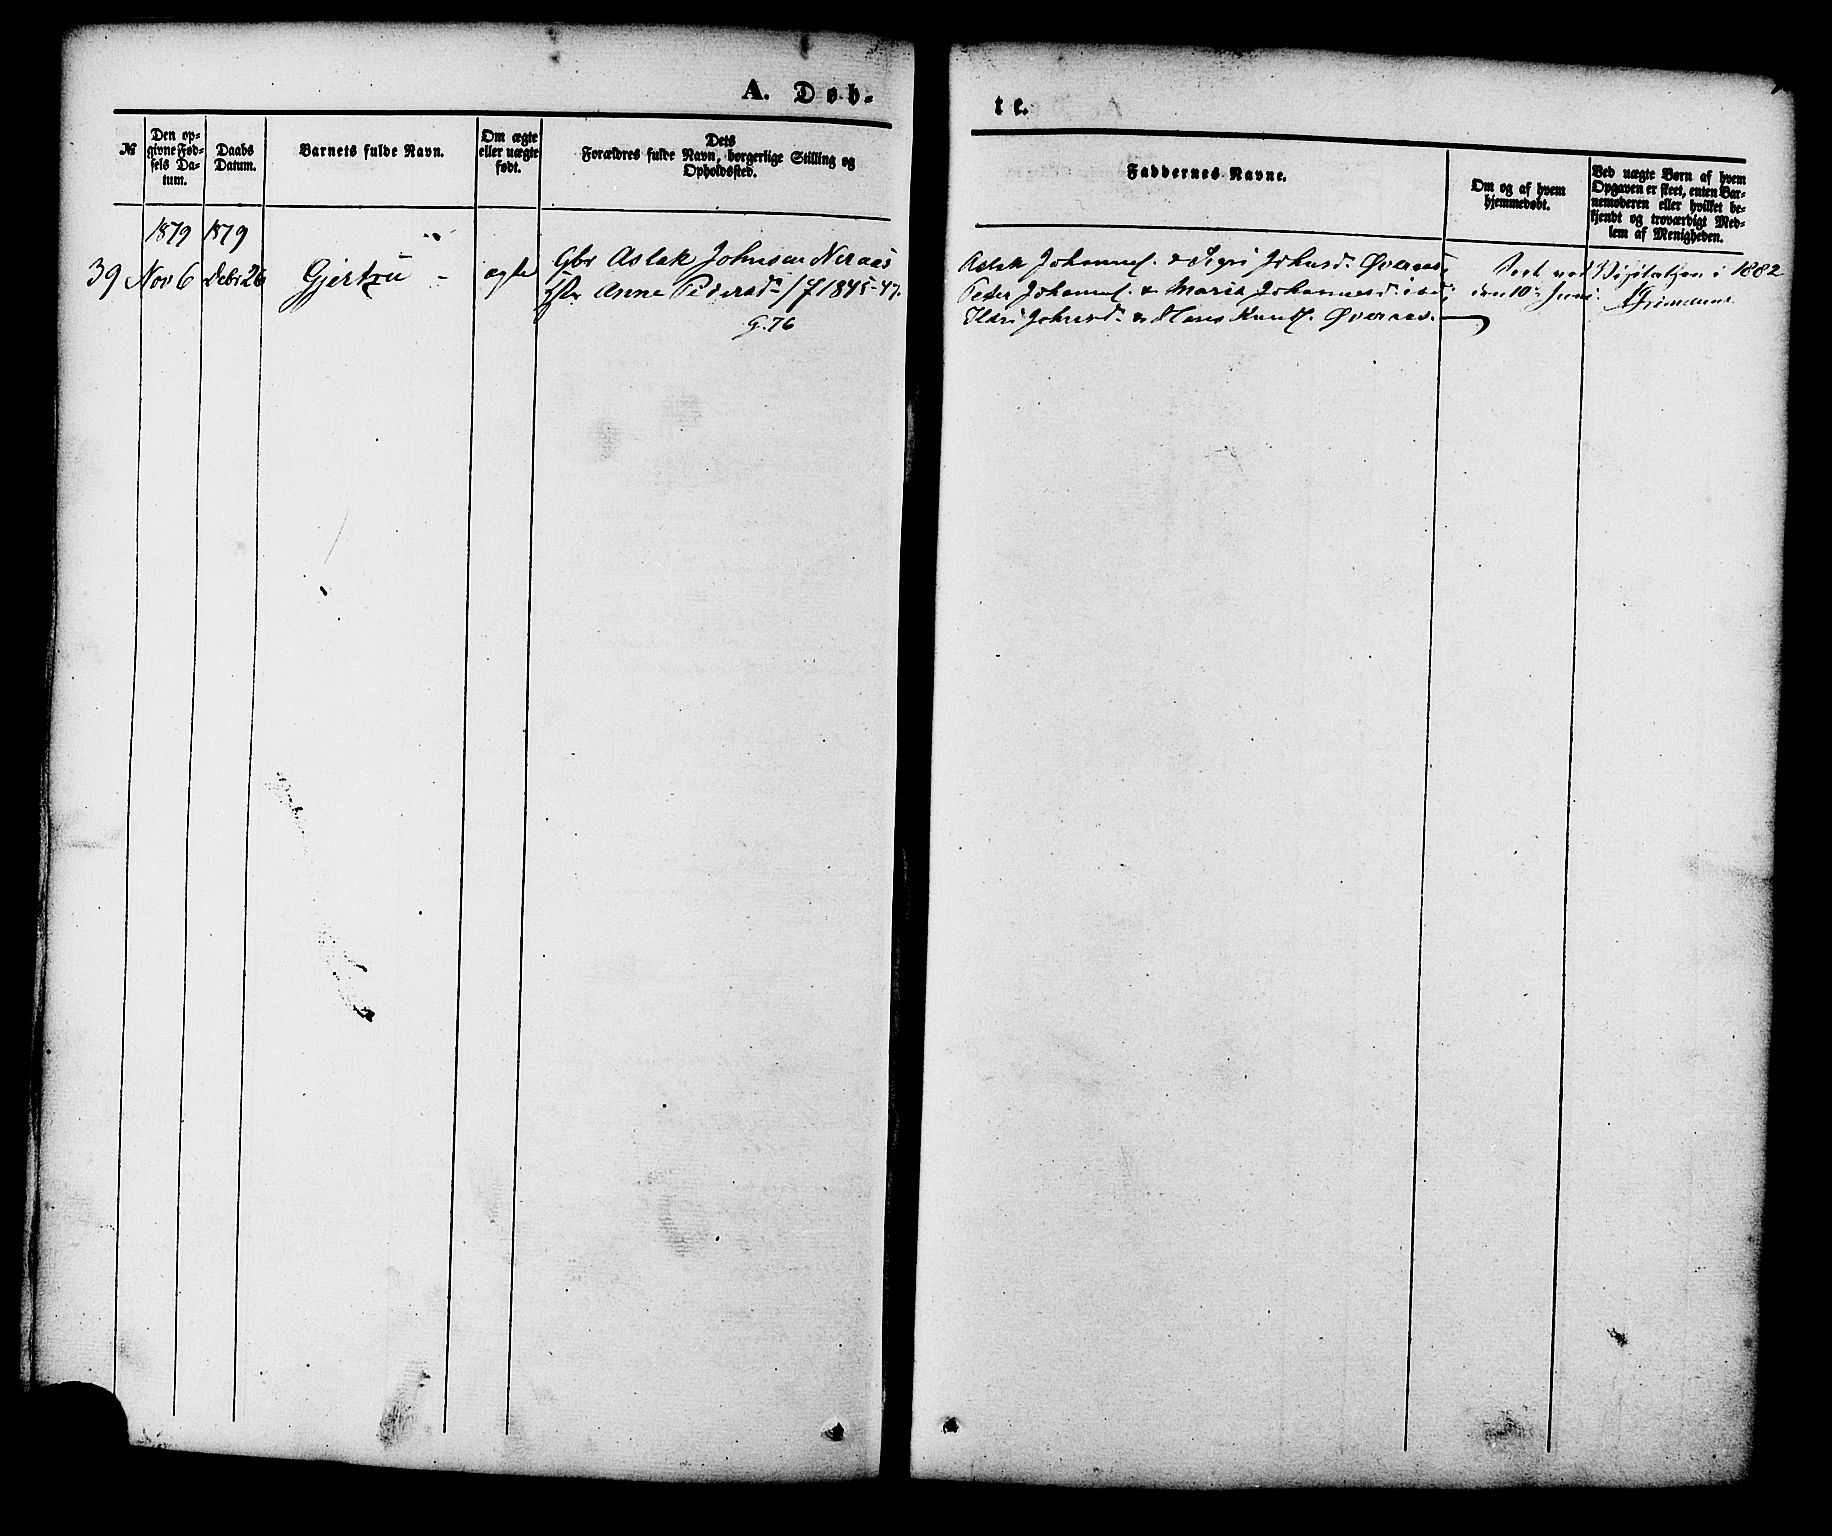 A. Døb-
te.
№
Den op-
givne Fød-
sels Da-
tum.
Daabs
Datum.
Barnets fulde Navn.
Om ægte
eller uægte
født.
Dets
Forældres fulde Navn, borgerlige Stilling og
Opholdssted.
Faddernes Navne.
Om og af hvem
hjemmedøbt.
Ved uægte Børn af hvem
Opgaven er skeet, enten Bar-
nemoderen eller hvilket be-
kjendt og troværdigt Med-
lem af Menigheden.
1879 1879
39 Nov 6 Debr 26 Gjertru - ægte
Gbr Aslak Johnsen Neraas
Anne Pedersd. / f 1845-47.
G. 76
Aslak Johannes. & Sigri Johnsd. Øveraas,
Peter Johannes. & Marit Johannesd. ibd;
Ildri Johnsd. & Hans Knuds. Øveraas.
Seet ved Visitatsen i 1882
den 10de Juni. Grimelund